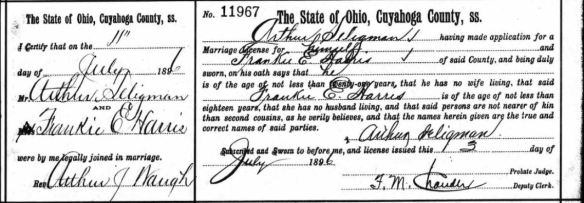 The State of Ohio, Cuyahoga County, ss.
I Certify that on the 11"
day of July 1896
Mr Arthur Seligman
AND
Frankie E Harris
were by me legally joined in marriage.
Rev Arthur J Waugh
No. 11967 The State of Ohio, Cuyahoga County, ss.
Arthur Seligman having made application for a
Marriage License for himself and
Frankie E Harris of said County, and being duly
sworn, on his oath says that he
is of the age of not less than twenty-one years, that he has no wife living, that said
Frankie E. Harris is of the age of not less than
eighteen years, that she has no husband living, and that said persons are not nearer of kin
than second cousins, as he verily believes, and that the names herein given are the true and
correct names of said parties.
Arthur Seligman
Subscribed and Sworn to before me, and license issued this 3 day of
July 1896
Probate Judge.
F. M. Deputy Clerk.